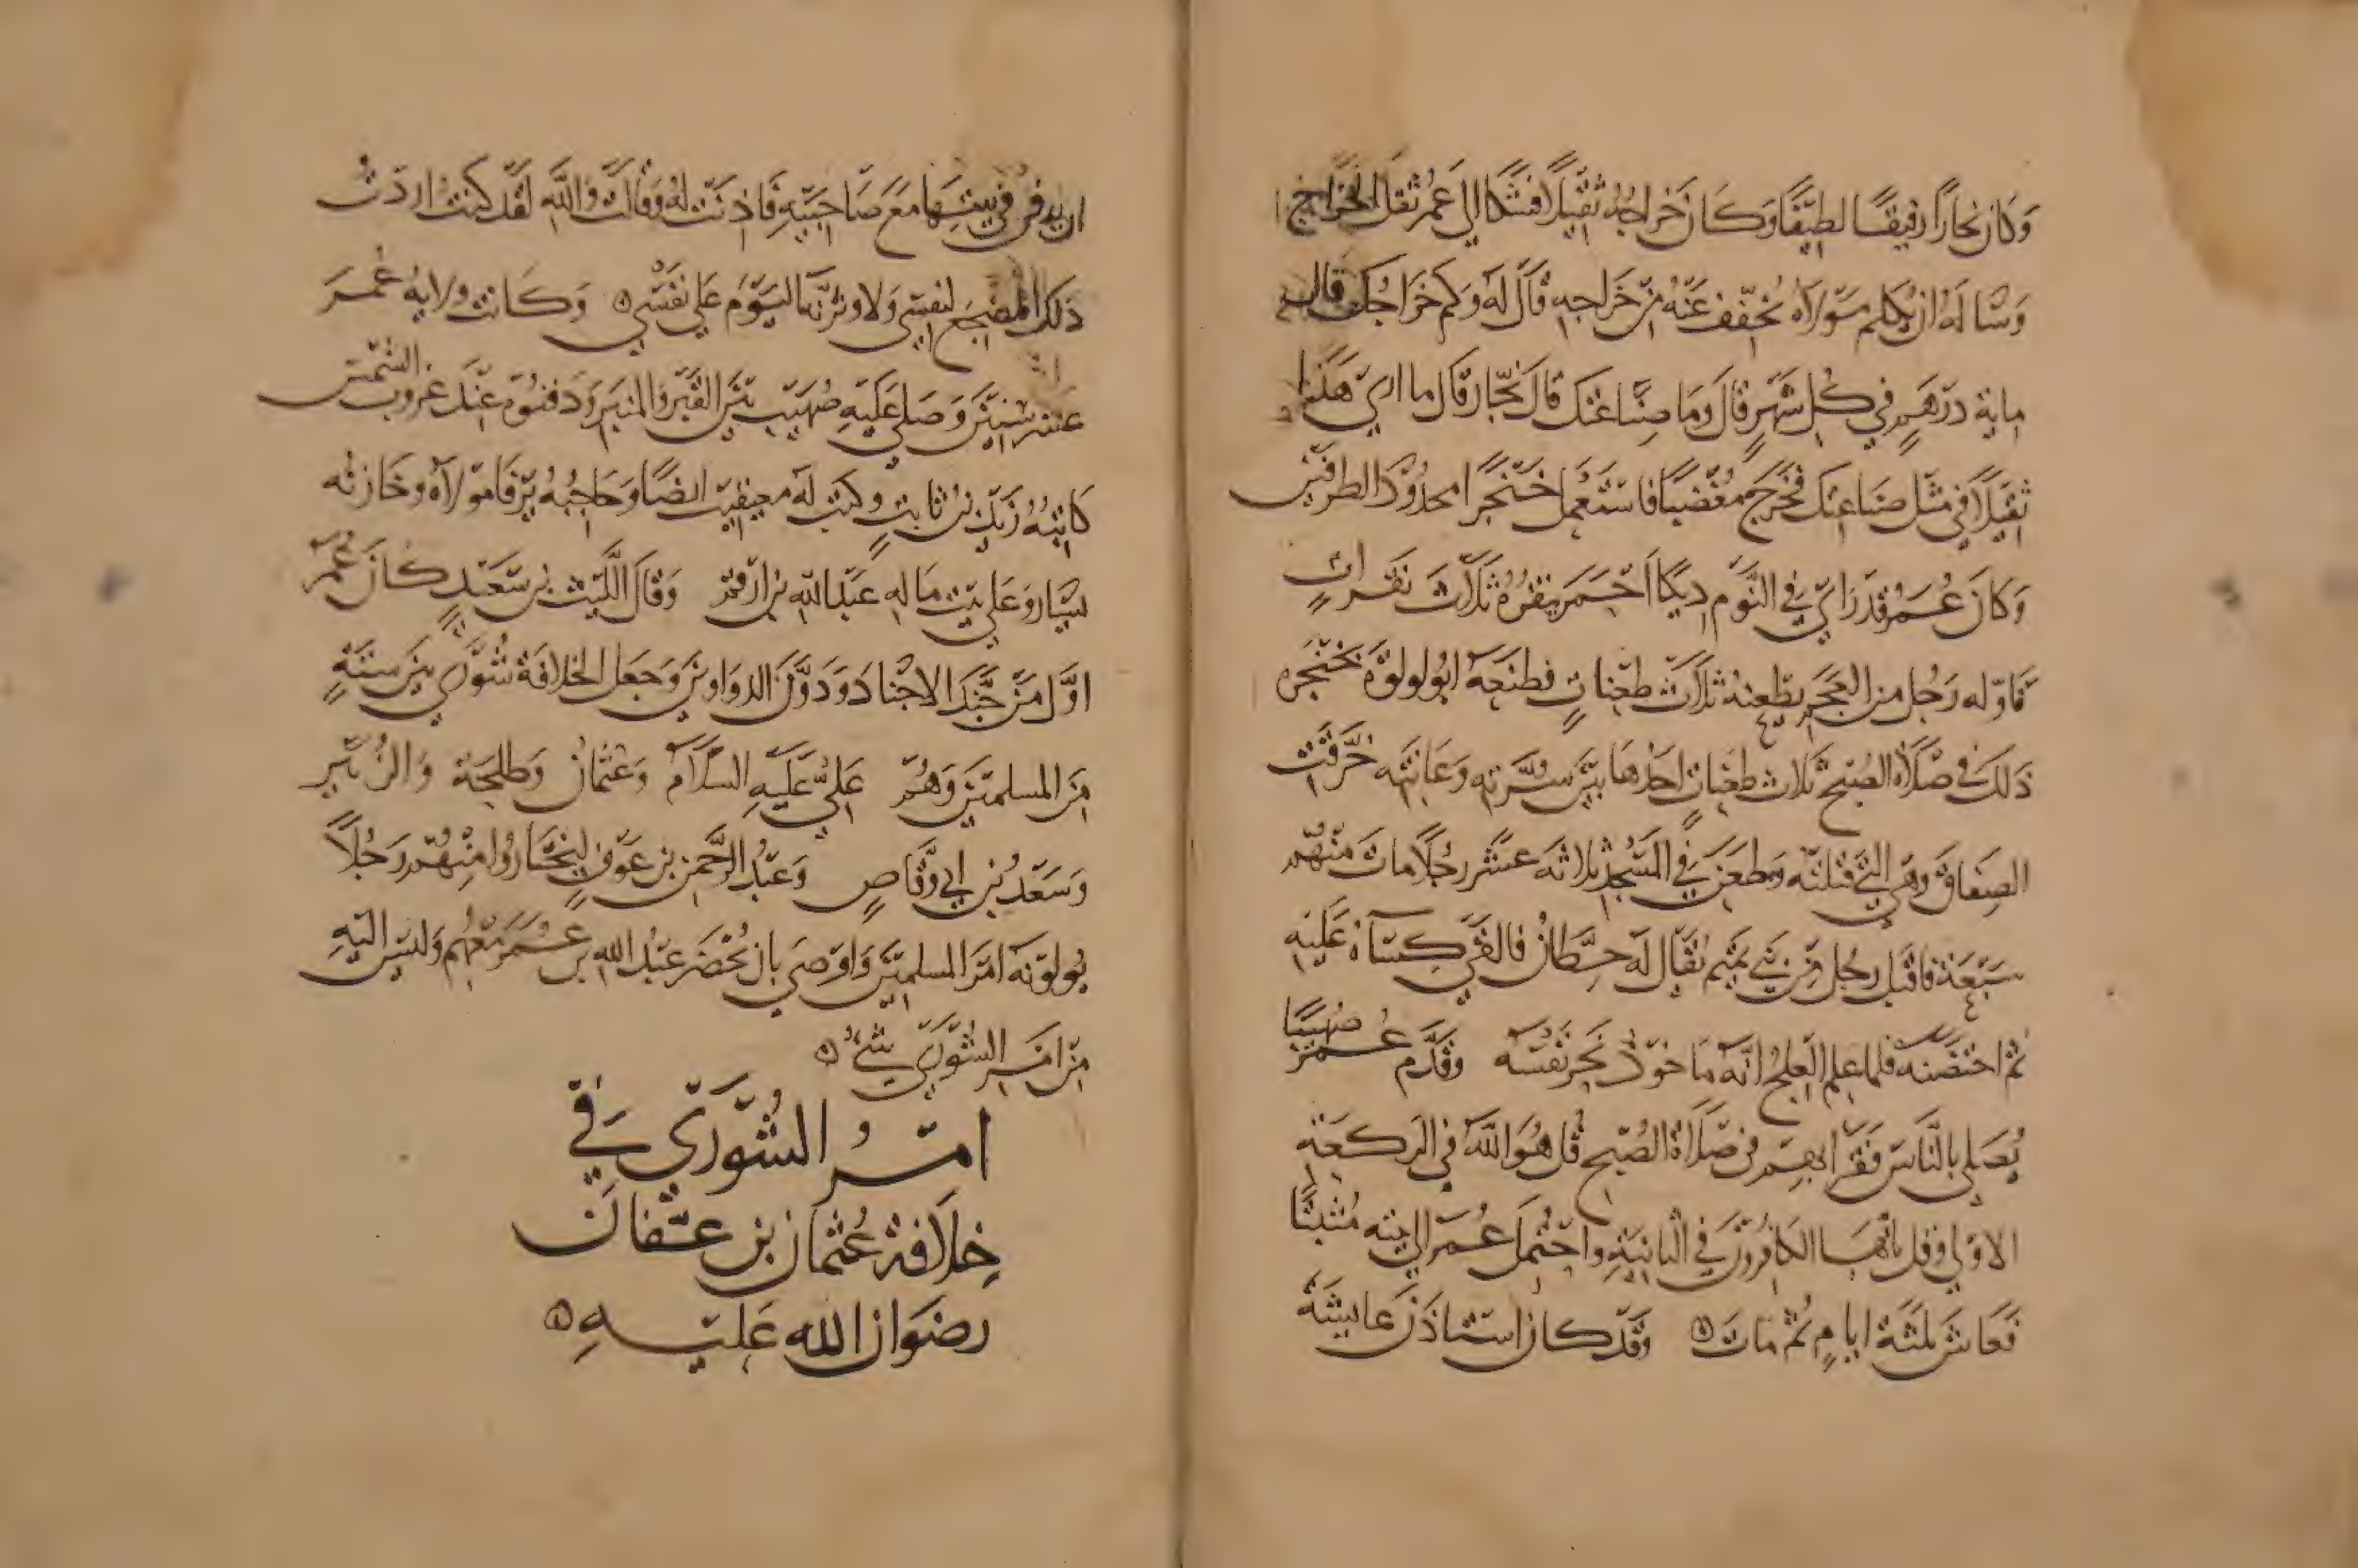 وكان نجاراً رفيقًا لطيفًا وكان خراجه ثقيلاً فشكا الى عمر ثقل الخراج
وسأله ان يكلم مولاه يخفف عنه من خراجه قال له وكم خراجك قال
ماية درهم في كل شهر قال وما صناعتك قال نجار قال ما ارى هذا
ثقيلاً في مثل صناعتك فخرج مغضبًا فاستعمل خنجرًا محدود الطرفين
وكان عمر قد رأى في النوم ديكًا احمر ينقره ثلاث نقرات
فاوله رجل من العجم يطعنه ثلاث طعنات فطعنه ابو لولوة بخنجره
ذلك في صلاة الصبح ثلاث طعنات احدها بين سرته وعانته خرقت
الصفاق وهي التي قتلته وطعن في المسجد ثلاثة عشر رجلاً مات منهم
سبعة فاقبل رجل من بني تميم يقال له حطان فالقى كساه عليه
ثم احتضنه فلما علم العلج انه ماخوذ نحر نفسه وقدم عمر صهيبًا
يصلي بالناس فقرا بهم في صلاة الصبح قل هو الله في الركعة
الاولى وقل يا ايها الكافرون في الثانية واحتمل عمر الى بيته
فعاش ثلثة ايام ثم مات وقد كان استاذن عايشة
ان يدفن في بيتها مع صاحبيه فاذنت له وقالت والله لقد كنت اردت
ذلك المضجع لنفسي ولاوثرنه اليوم على نفسي وكانت ولاية عمر
عشر سنين وصلى عليه صهيب بين القبر والمنبر ودفنوه عند غروب الشمس
كاتبه زيد بن ثابت وكتب له معيقيب ايضًا وحاجبه يرفا مولاه وخازنه
يسار وعلى بيت ماله عبد الله بن ارقم وقال الليث بن سعد كان عمر
اول من جند الاجناد ودون الدواوين وجعل الخلافة شورى بين ستة
من المسلمين وهم علي عليه السلام وعثمان وطلحة والزبير
وسعد بن ابي وقاص وعبد الرحمن بن عوف ليختاروا منهم رجلاً
يولونه امر المسلمين واوصى بان يحضر عبد الله بن عمر معهم وليس اليه
من امر الشورى شيء
امر الشورى في
خلافة عثمان بن عفان
رضوان الله عليه